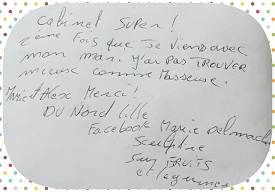 Cabinet Super !
2ème Fois que je viens avec
mon mari. Y'a pas TROUVER
mieux comme Masseuse.
Marie et Alex Merci !
DU Nord Lille
Facebook Marie Delmache
Sculptrice
Sur FRUITS
et legumes